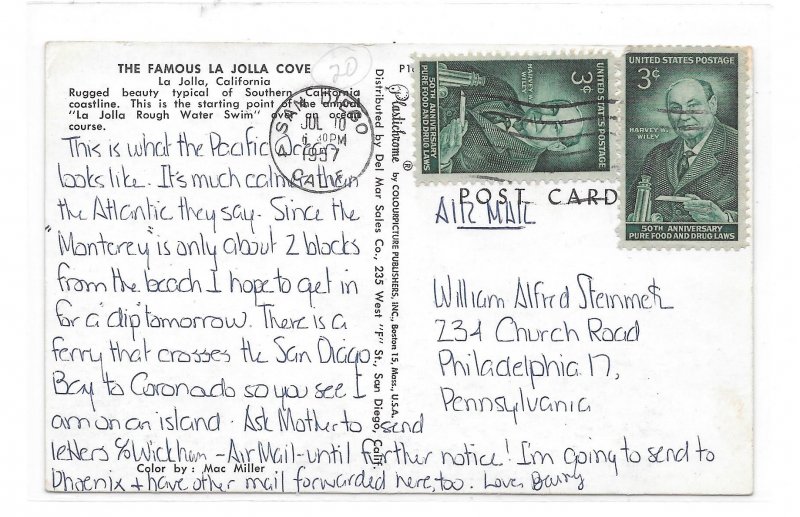 THE FAMOUS LA JOLLA COVE
La Jolla, California
Rugged beauty typical of Southern California
coastline. This is the starting point of the annual
"La Jolla Rough Water Swim" over the ocean
course.
20
SAN DIEGO
JUL 10
PM
1957
CALIF
This is what the Pacific Ocean
looks like. It's much calmer than
the Atlantic they say. Since the
"Monterey" is only about 2 blocks
from the beach I hope to get in
for a dip tomorrow. There is a
ferry that crosses the San Diago
Bay to Coronado so you see I
am on an island. Ask Mother to send
letters c/o Wickham - Air Mail - until further notice! I'm going to send to
Phoenix + have other mail forwarded here, too. Love, Barry
Color by: Mac Miller
Plastichrome ® by COLOURPICTURE PUBLISHERS, INC., Boston 15, Mass., U.S.A.
Distributed by Del Mar Sales Co., 235 West "F" St., San Diego, Calif.
UNITED STATES POSTAGE
3¢
HARVEY W. WILEY
50TH ANNIVERSARY
PURE FOOD AND DRUG LAWS
UNITED STATES POSTAGE
3¢
HARVEY W.
WILEY
50TH ANNIVERSARY
PURE FOOD AND DRUG LAWS
POST CARD
AIR MAIL
William Alfred Steinmetz
234 Church Road
Philadelphia 17,
Pennsylvania